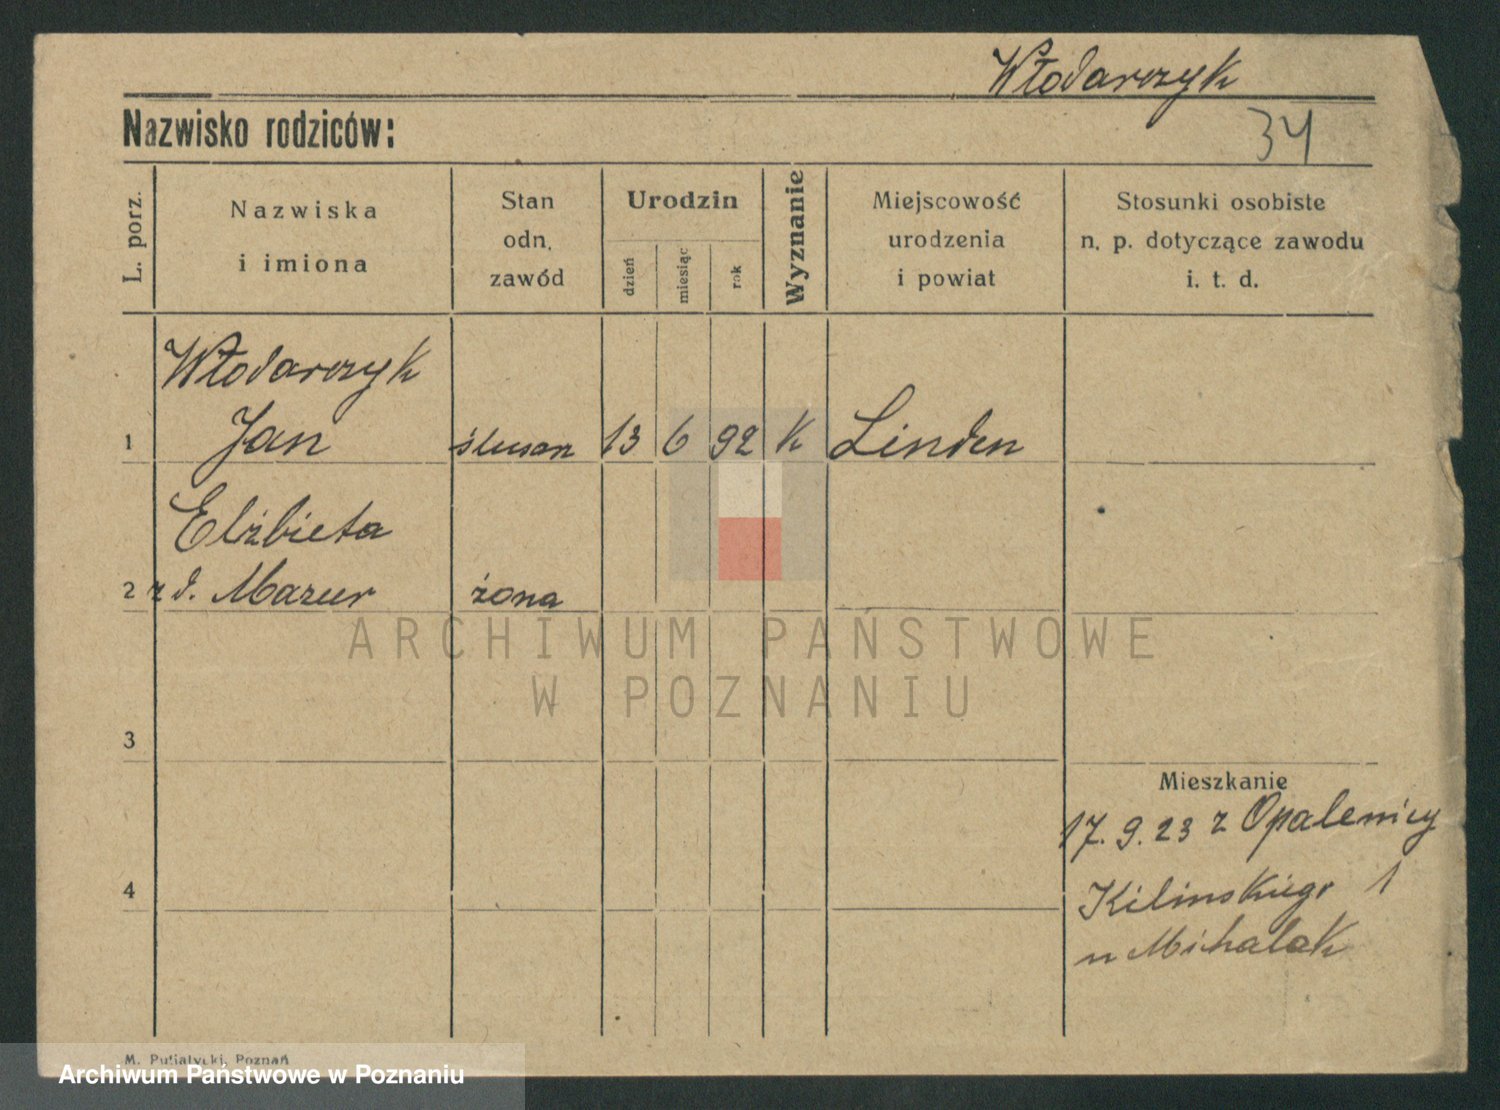 Włodarczyk
Nazwisko rodziców:
34
L. porz.
Nazwiska
i imiona
Stan
odn.
zawód
Urodzin
dzień
miesiąc
rok
Wyznanie
Miejscowość
urodzenia
i powiat
Stosunki osobiste
n. p. dotyczące zawodu
i. t. d.
Włodarczyk
1 Jan ślusarz 13 6 92 K Linden
Elżbieta
2 z d. Mazur żona
ARCHIWUM PAŃSTWOWE
W POZNANIU
3
Mieszkanie
17. 9. 23 z Opalenicy
4
Kilinskiego 1
u Michalak
M. Putiatycki, Poznań
Archiwum Państwowe w Poznaniu